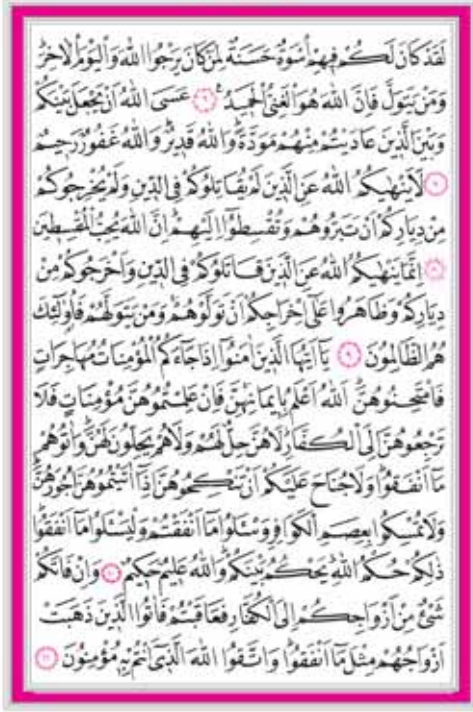 لَقَدْ كَانَ لَكُمْ فِيهِمْ اُسْوَةٌ حَسَنَةٌ لِمَنْ كَانَ يَرْجُوا اللّٰهَ وَالْيَوْمَ الْاٰخِرَۜ
وَمَنْ يَتَوَلَّ فَاِنَّ اللّٰهَ هُوَ الْغَنِىُّ الْحَمِيدُ ﴿٦﴾ عَسَى اللّٰهُ اَنْ يَجْعَلَ بَيْنَكُمْ
وَبَيْنَ الَّذِينَ عَادَيْتُمْ مِنْهُمْ مَوَدَّةًۜ وَاللّٰهُ قَدِيرٌۜ وَاللّٰهُ غَفُورٌ رَحِيمٌ
﴿٧﴾ لَا يَنْهٰيكُمُ اللّٰهُ عَنِ الَّذِينَ لَمْ يُقَاتِلُوكُمْ فِى الدِّينِ وَلَمْ يُخْرِجُوكُمْ
مِنْ دِيَارِكُمْ اَنْ تَبَرُّوهُمْ وَتُقْسِطُٓوا اِلَيْهِمْۜ اِنَّ اللّٰهَ يُحِبُّ الْمُقْسِطِينَ
﴿٨﴾ اِنَّمَا يَنْهٰيكُمُ اللّٰهُ عَنِ الَّذِينَ قَاتَلُوكُمْ فِى الدِّينِ وَاَخْرَجُوكُمْ مِنْ
دِيَارِكُمْ وَظَاهَرُوا عَلٰٓى اِخْرَاجِكُمْ اَنْ تَوَلَّوْهُمْۚ وَمَنْ يَتَوَلَّهُمْ فَاُو۬لٰٓئِكَ
هُمُ الظَّالِمُونَ ﴿٩﴾ يَٓا اَيُّهَا الَّذِينَ اٰمَنُٓوا اِذَا جَٓاءَكُمُ الْمُؤْمِنَاتُ مُهَاجِرَاتٍ
فَامْتَحِنُوهُنَّۜ اَللّٰهُ اَعْلَمُ بِاِيمَانِهِنَّۚ فَاِنْ عَلِمْتُمُوهُنَّ مُؤْمِنَاتٍ فَلَا
تَرْجِعُوهُنَّ اِلَى الْكُفَّارِۜ لَا هُنَّ حِلٌّ لَهُمْ وَلَا هُمْ يَحِلُّونَ لَهُنَّۜ وَاٰتُوهُمْ
مَٓا اَنْفَقُواۜ وَلَا جُنَاحَ عَلَيْكُمْ اَنْ تَنْكِحُوهُنَّ اِذَٓا اٰتَيْتُمُوهُنَّ اُجُورَهُنَّۜ
وَلَا تُمْسِكُوا بِعِصَمِ الْكَوَافِرِ وَسْـَٔلُوا مَٓا اَنْفَقْتُمْ وَلْيَسْـَٔلُوا مَٓا اَنْفَقُواۜ
ذٰلِكُمْ حُكْمُ اللّٰهِۜ يَحْكُمُ بَيْنَكُمْۜ وَاللّٰهُ عَلِيمٌ حَكِيمٌ ﴿١٠﴾ وَاِنْ فَاتَكُمْ
شَىْءٌ مِنْ اَزْوَاجِكُمْ اِلَى الْكُفَّارِ فَعَاقَبْتُمْ فَاٰتُوا الَّذِينَ ذَهَبَتْ
اَزْوَاجُهُمْ مِثْلَ مَٓا اَنْفَقُواۜ وَاتَّقُوا اللّٰهَ الَّذِٓى اَنْتُمْ بِهِ مُؤْمِنُونَ ﴿١١﴾